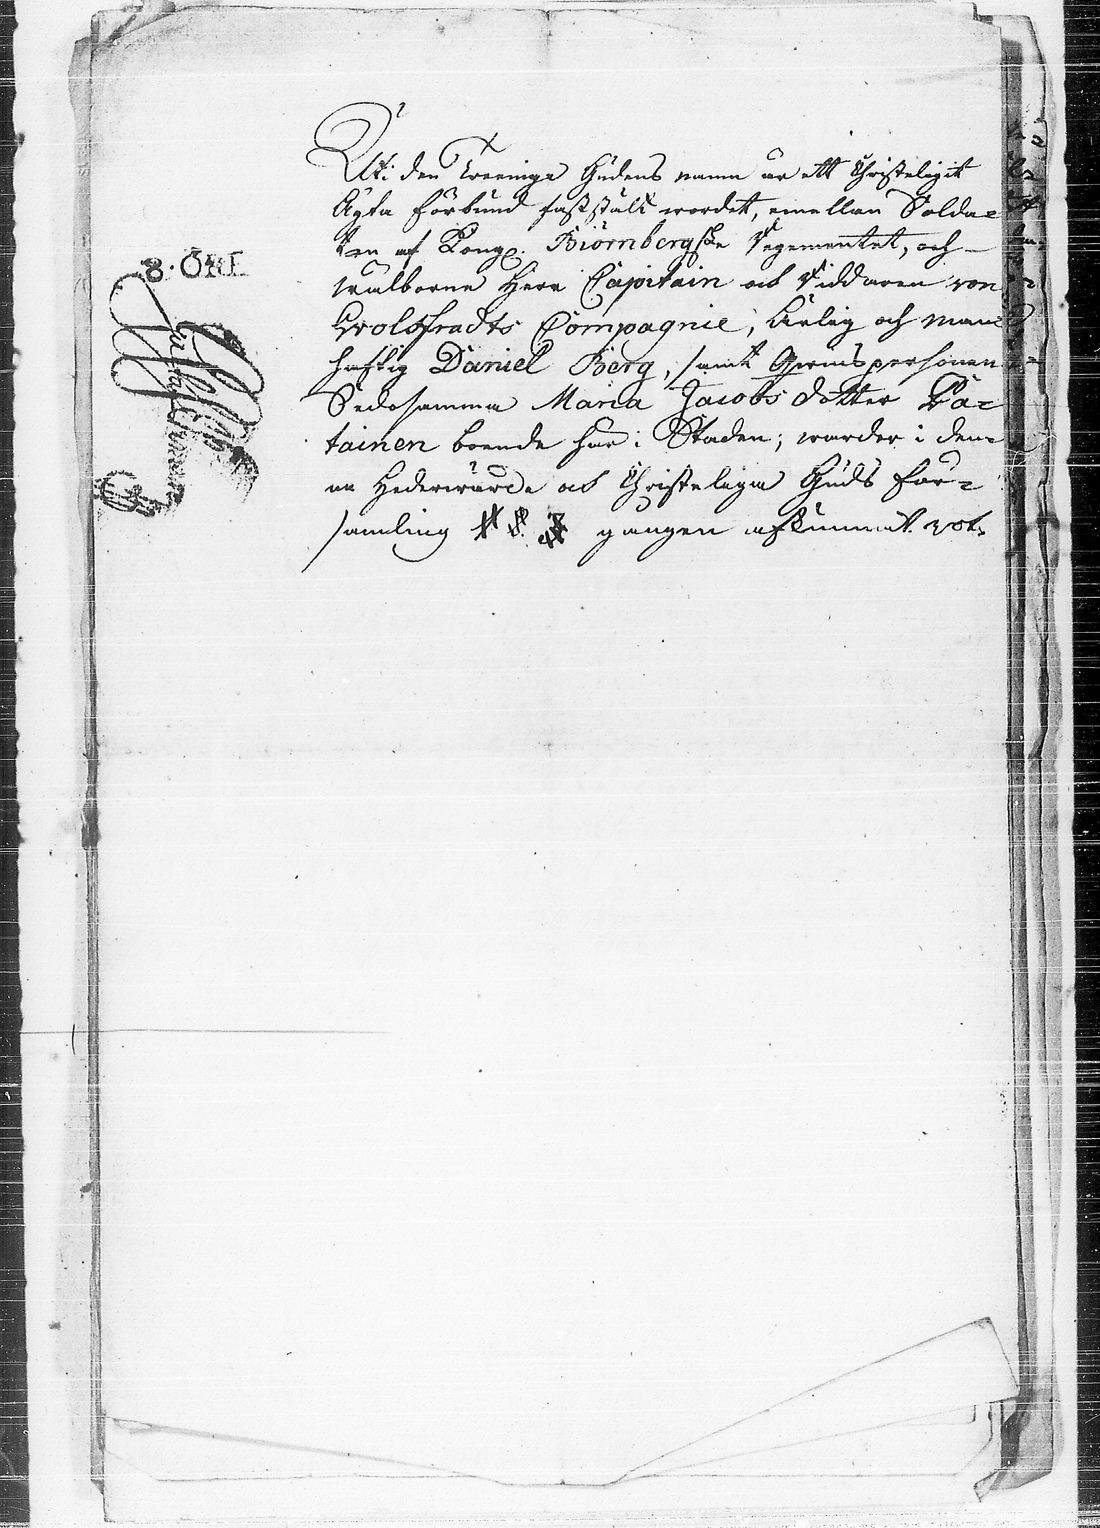 8. ÖRE
Uti den Treeniga Gudens namn är ett Christeligit
Ägta förbund fastställt wordet, emellan Solda=
ten af Kongl. Biörnbergske Regementet, och
wälborne Herr Capitain och Riddaren von
Wolsfradts Compagnie, Ärlig och Man=
haftig Daniel Berg, samt Qwinspersonen
Sedosamma Maria Jacobs dotter Pä=
tainen boende här i Staden; warder i den=
na Hederwärda och Christeliga Guds för=
samling gången afkunnat